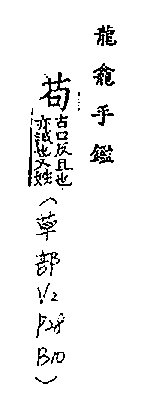 龍龕手鑑
苟
古口反且也
亦誠也又姓
(草部
V2
P28
B10)